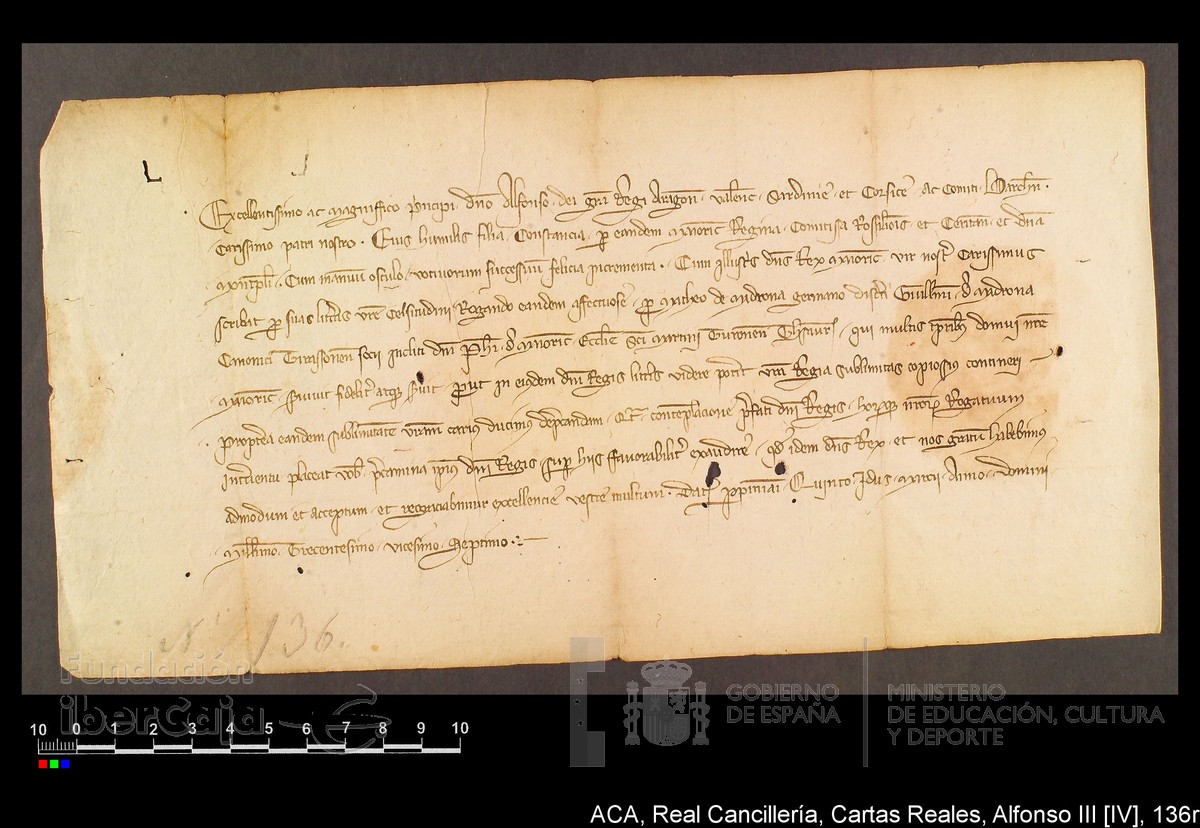 Excellentissimo ac magniffico principi dno Alfonso dei gra Regi Aragon Valenc Sardinie et Corsice ac Comiti Barchn
Carissimo patri nostro Eius humilis filia Constancia per eandem Maioric Regina Comitissa Rossilionis et Ceritan et dna
Montpli Cum manuum osculo votivorum successuum felicia incrementa Cum illustris dns Rex Maioric vir noster carissimus
scribat per suas litteras vre Celsitudini Rogando eandem affectuose pro Matheo de Androna germano discreti Guillmi de Androna
Canonici socii incliti dni Phi de Maioric Ecclie Sci Martini Turonen Thesaur qui multis temporibus domui
Maioric servivit fideliter atque servit prout in eiusdem dni Regis litteris videre poterit vra Regia sublimitas copiosius contineri
Propterea eandem sublimitatem vram carius ducimus deprecandam Qt contemplacione prefati dni Regis Rogatuum
interventu placeat vob precamina ipius dni Regis super hiis favorabiliter exaudire qd idem dns Rex et nos gratum habebimus
admodum et acceptum et regraciabimur excellencie vestre multum Dat Perpiniani Quinto Idus Marcii Anno Domini
Millimo Trecentesimo vicesimo Septimo
Nº 136.
Fundación
iberCaja
GOBIERNO
DE ESPAÑA
MINISTERIO
DE EDUCACIÓN, CULTURA
Y DEPORTE
10 0 1 2 3 4 5 6 7 8 9 10
ACA, Real Cancillería, Cartas Reales, Alfonso III [IV], 136r